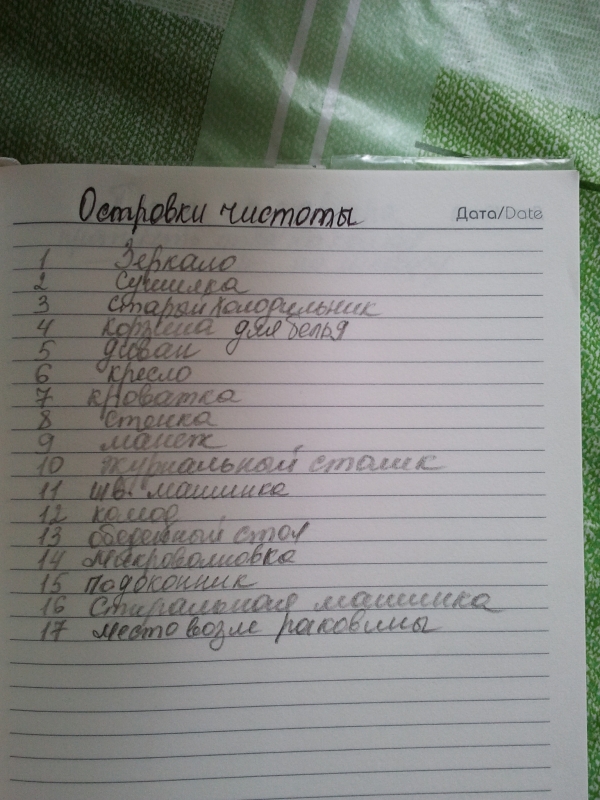 Островки чистоты
Дата/Date
1 Зеркало
2 Сушилка
3 Старый холодильник
4 корзина для белья
5 диван
6 кресло
7 кроватка
8 стенка
9 манеж
10 журнальный столик
11 шв. машинка
12 комод
13 обеденный стол
14 микроволновка
15 подоконник
16 Стиральная машинка
17 место возле раковины